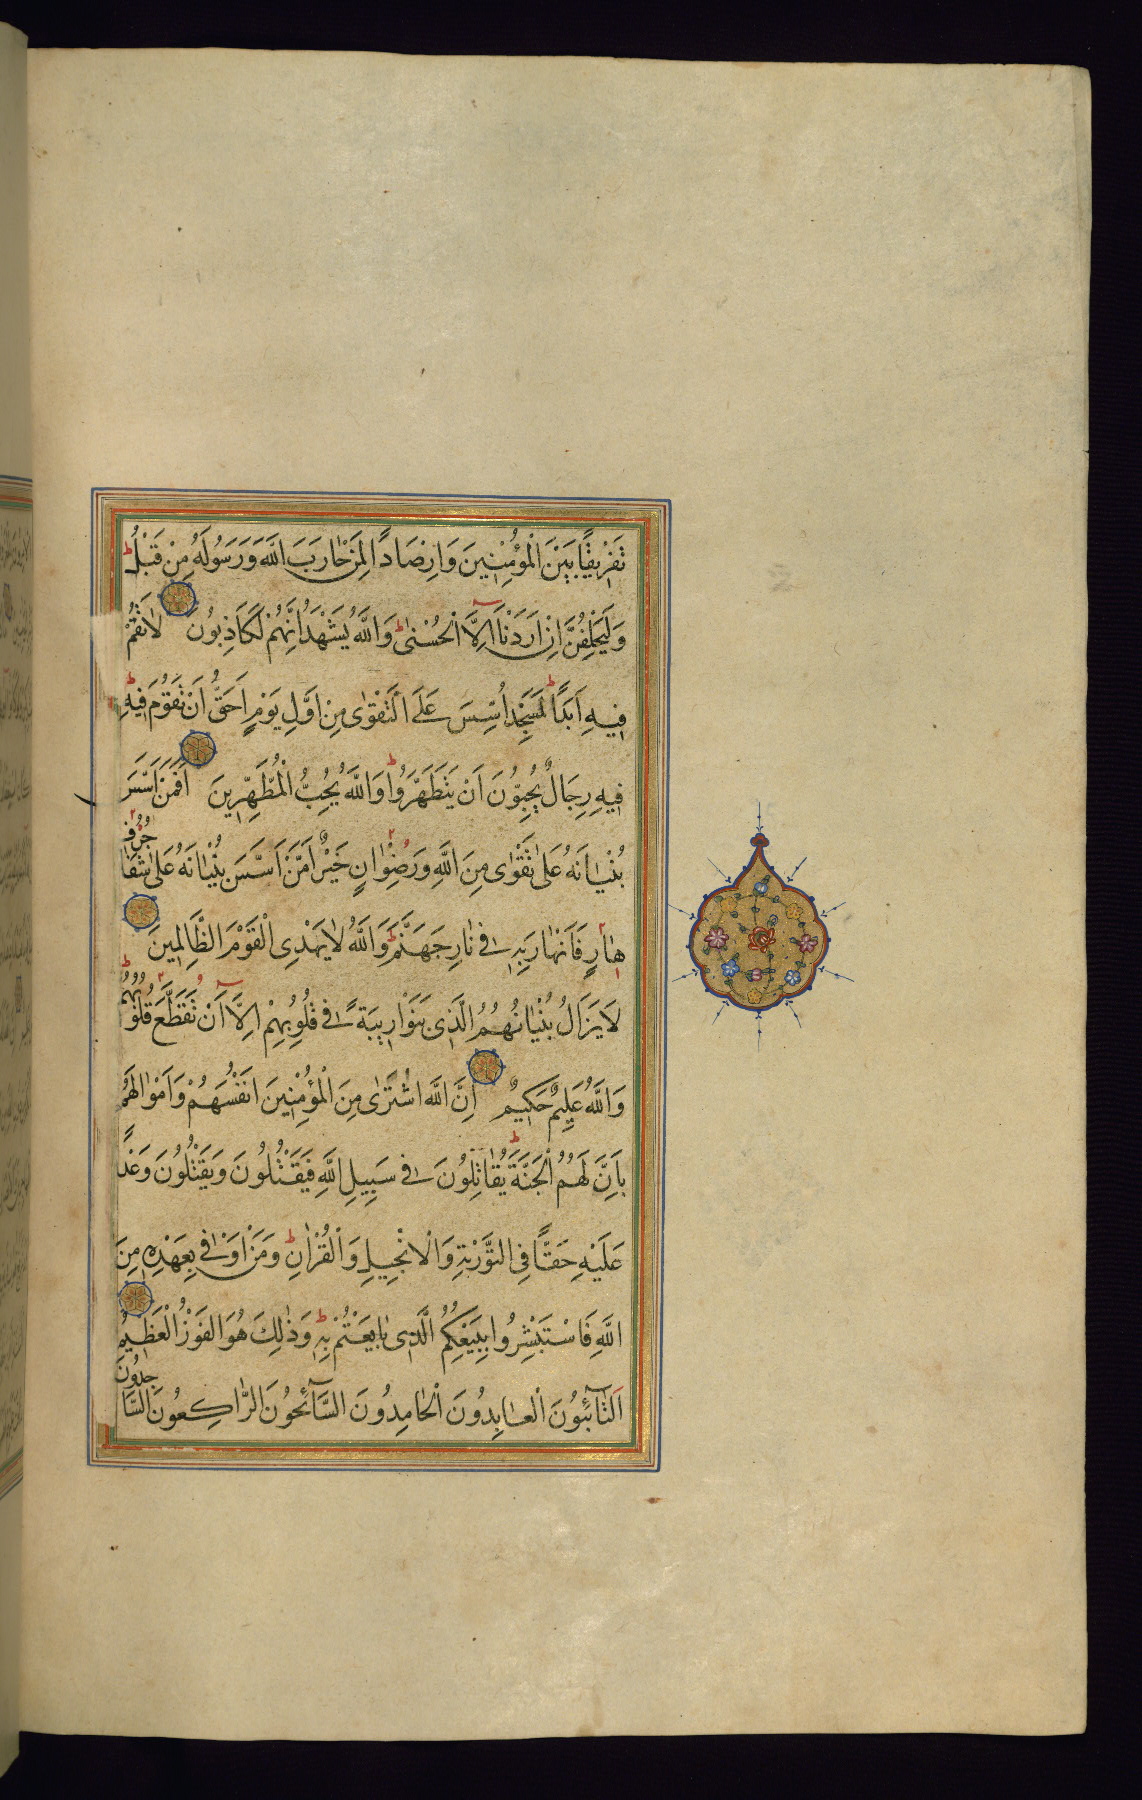 تَفْرِيقًا بَيْنَ الْمُؤْمِنِينَ وَاِرْصَادًا لِمَنْ حَارَبَ اللّٰهَ وَرَسُولَهُ مِنْ قَبْلُ ط
وَلَيَحْلِفُنَّ اِنْ اَرَدْنَٓا اِلَّا الْحُسْنٰى ط وَاللّٰهُ يَشْهَدُ اِنَّهُمْ لَكَاذِبُونَ لَا تَقُمْ
فِيهِ اَبَدًا ط لَمَسْجِدٌ اُسِّسَ عَلَى التَّقْوٰى مِنْ اَوَّلِ يَوْمٍ اَحَقُّ اَنْ تَقُومَ فِيهِ ط
فِيهِ رِجَالٌ يُحِبُّونَ اَنْ يَتَطَهَّرُوا ط وَاللّٰهُ يُحِبُّ الْمُطَّهِّرِينَ اَفَمَنْ اَسَّسَ
بُنْيَانَهُ عَلٰى تَقْوٰى مِنَ اللّٰهِ وَرِضْوَانٍ خَيْرٌ اَمْ مَنْ اَسَّسَ بُنْيَانَهُ عَلٰى شَفَا جُرُفٍ
هَارٍ فَانْهَارَ بِهِ فِي نَارِ جَهَنَّمَ ط وَاللّٰهُ لَا يَهْدِى الْقَوْمَ الظَّالِمِينَ
لَا يَزَالُ بُنْيَانُهُمُ الَّذِى بَنَوْا رِيبَةً فِى قُلُوبِهِمْ اِلَّٓا اَنْ تَقَطَّعَ قُلُوبُهُمْ ط
وَاللّٰهُ عَلِيمٌ حَكِيمٌ اِنَّ اللّٰهَ اشْتَرٰى مِنَ الْمُؤْمِنِينَ اَنْفُسَهُمْ وَاَمْوَالَهُمْ
بِاَنَّ لَهُمُ الْجَنَّةَ ط يُقَاتِلُونَ فِى سَبِيلِ اللّٰهِ فَيَقْتُلُونَ وَيُقْتَلُونَ وَعْدًا
عَلَيْهِ حَقًّا فِى التَّوْرٰيةِ وَالْاِنْجِيلِ وَالْقُرْاٰنِ ط وَمَنْ اَوْفٰى بِعَهْدِهِ مِنَ
اللّٰهِ فَاسْتَبْشِرُوا بِبَيْعِكُمُ الَّذِى بَايَعْتُمْ بِهِ ط وَذٰلِكَ هُوَ الْفَوْزُ الْعَظِيمُ
اَلتَّٓائِبُونَ الْعَابِدُونَ الْحَامِدُونَ السَّٓائِحُونَ الرَّاكِعُونَ السَّاجِدُونَ